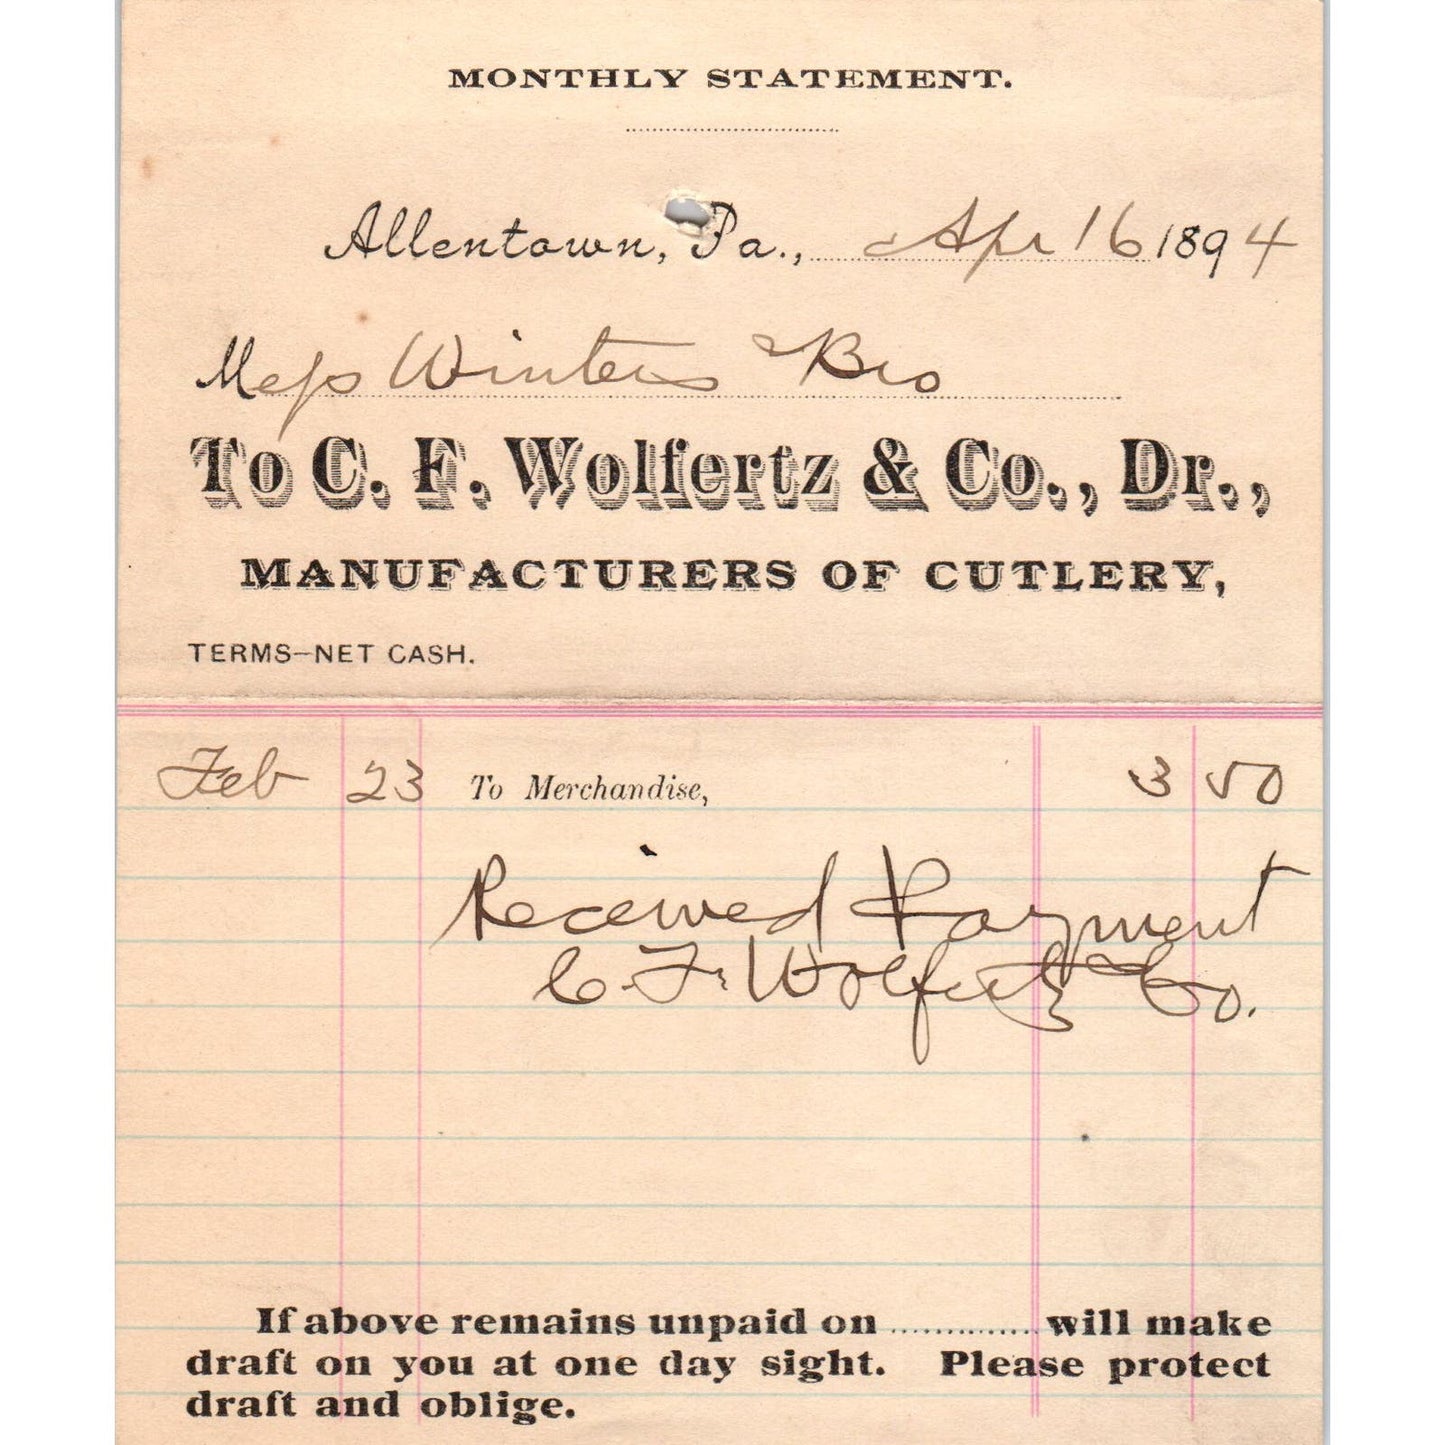 MONTHLY STATEMENT.
Allentown, Pa., Apr 16 1894
Mess Winters & Bro
To C. F. Wolfertz & Co., Dr.,
MANUFACTURERS OF CUTLERY,
TERMS—NET CASH.
Feb 23 To Merchandise, 3 50
Received Payment
C. F. Wolfertz & Co.
If above remains unpaid on .............. will make
draft on you at one day sight. Please protect
draft and oblige.